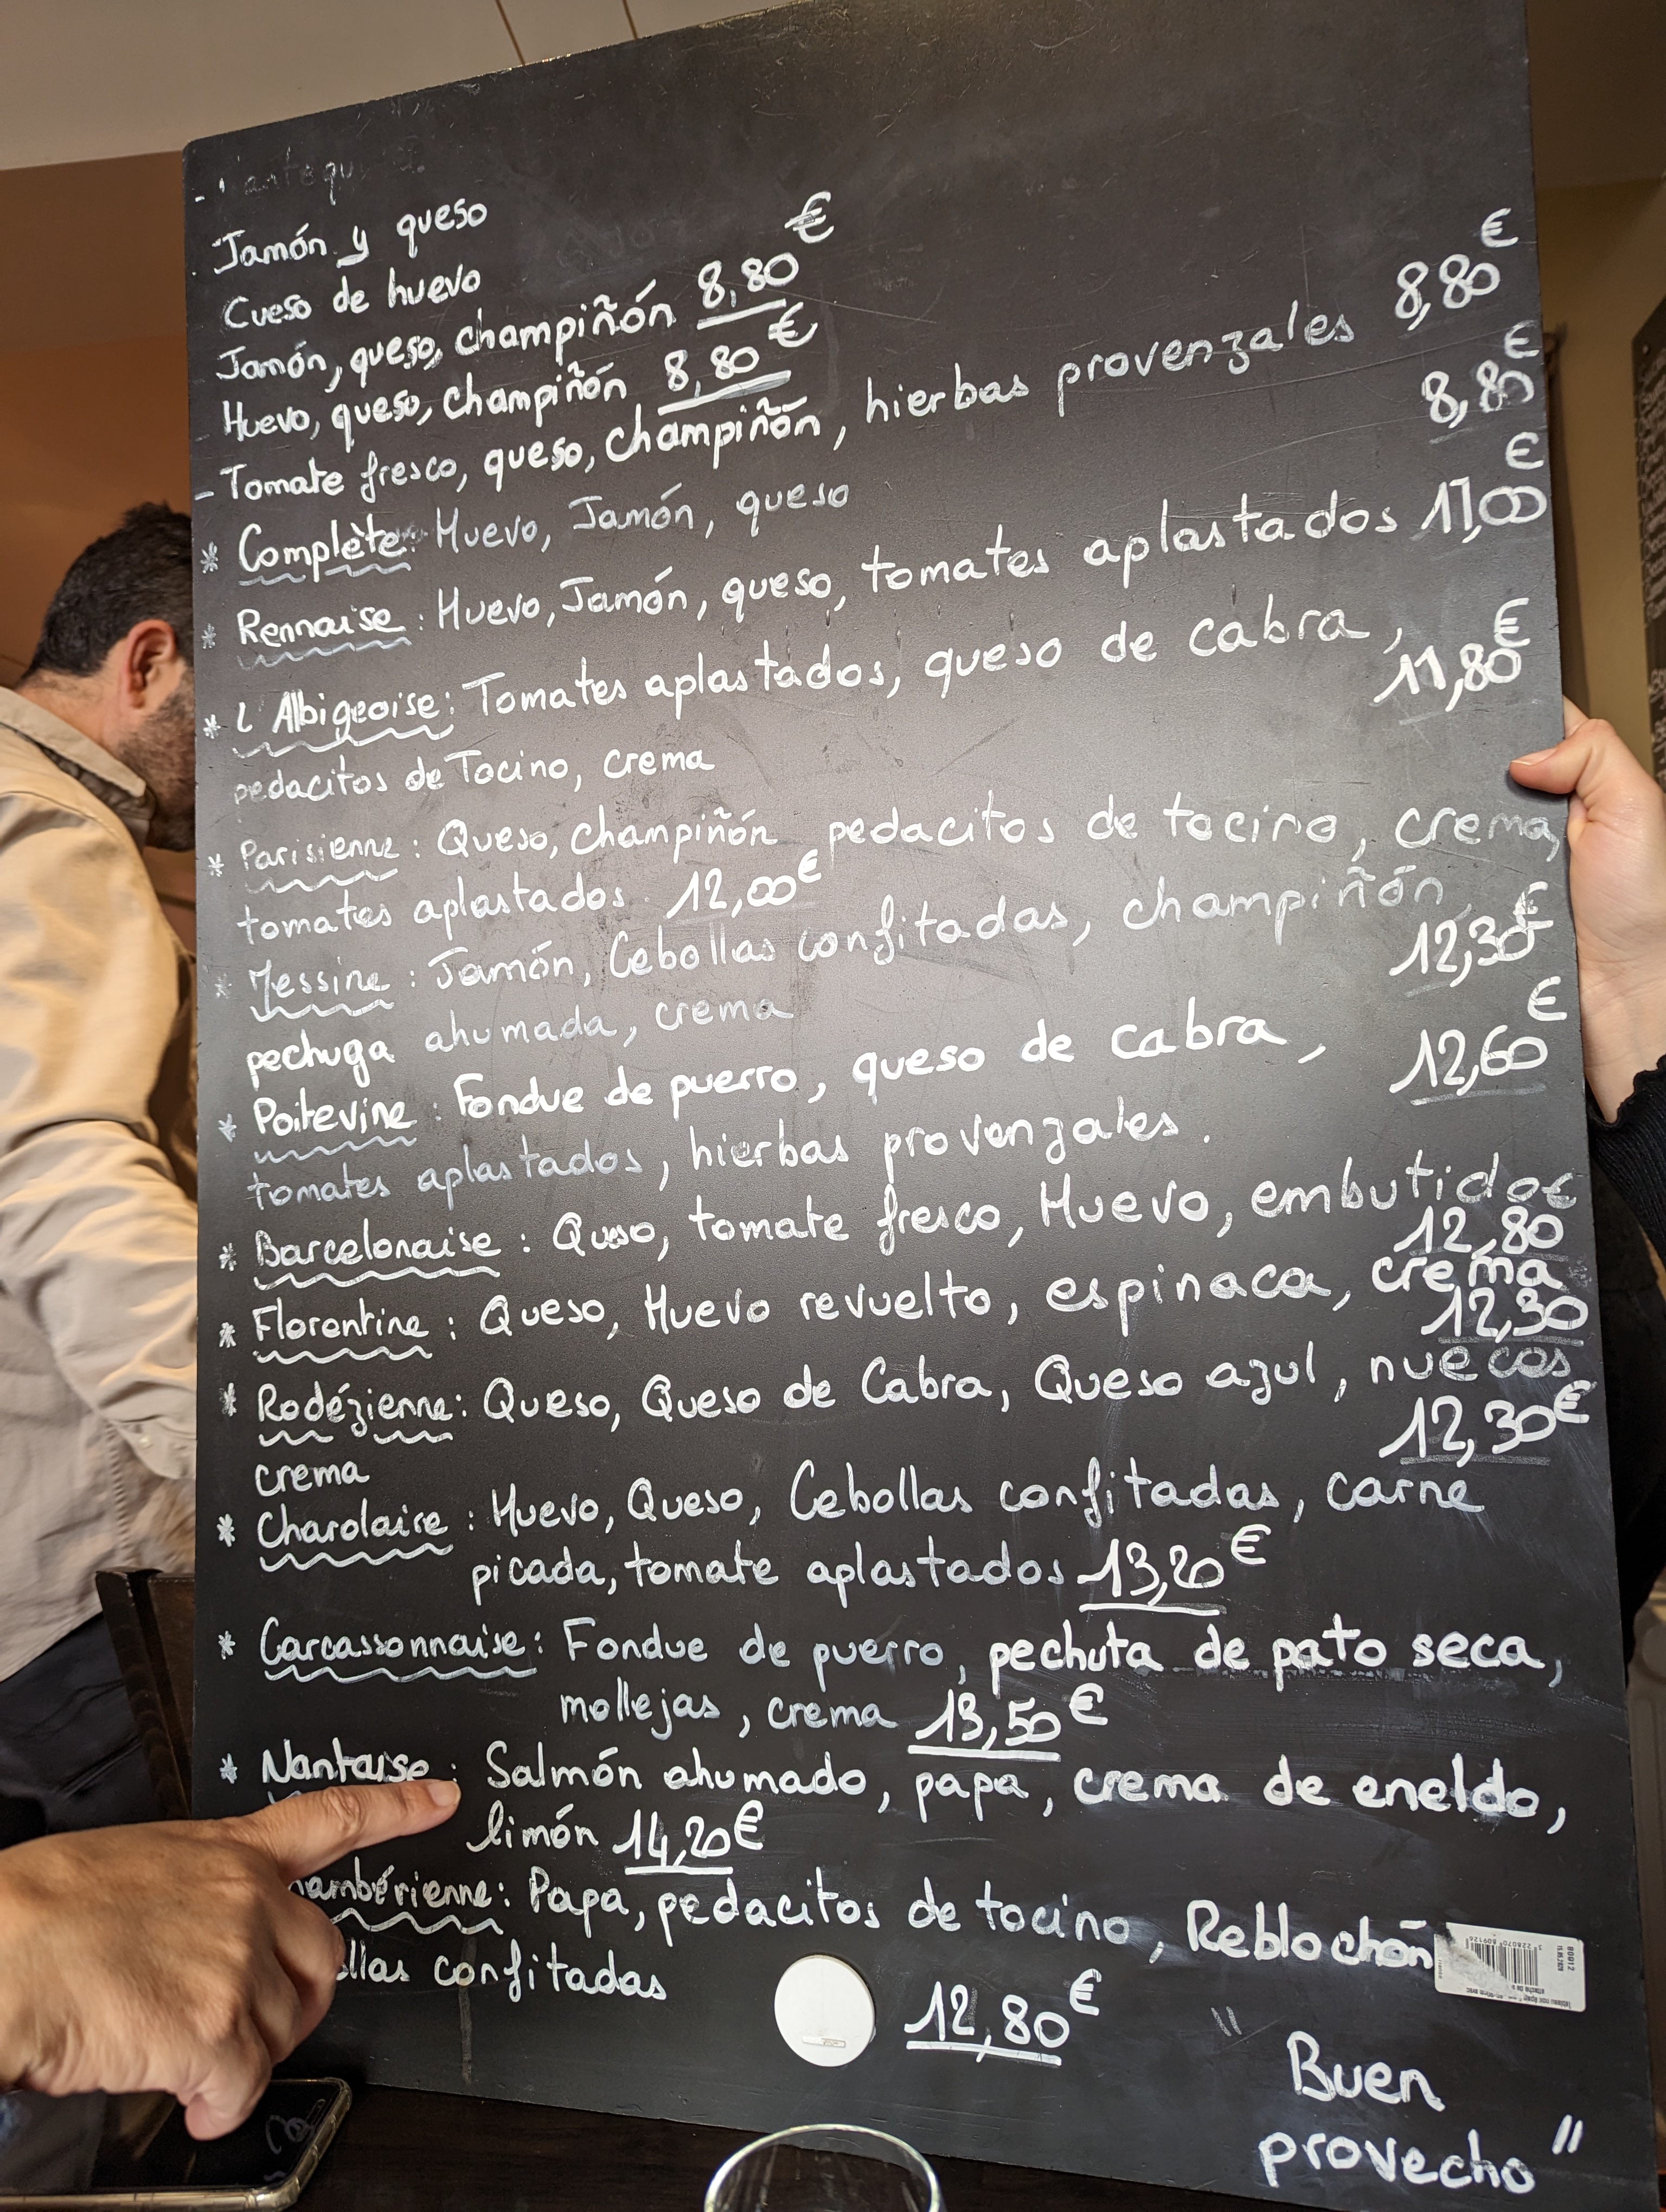 Jamón y queso
Cueso de huevo
Jamón, queso, champiñón 8,80€
- Huevo, queso, champiñón 8,80€
- Tomate fresco, queso, champiñón, hierbas provenzales 8,80€
* Complète: Huevo, Jamón, queso 8,80€
* Rennaise : Huevo, Jamón, queso, tomates aplastados 11,00€
* L'Albigeoise : Tomates aplastados, queso de cabra, 11,80€
pedacitos de Tocino, crema
* Parisienne : Queso, champiñón pedacitos de tocino, crema,
tomates aplastados. 12,00€
* Messine : Jamón, Cebollas confitadas, champiñón, 12,30€
pechuga ahumada, crema
* Poitevine : Fondue de puerro, queso de cabra, 12,60€
tomates aplastados, hierbas provenzales.
* Barcelonaise : Queso, tomate fresco, Huevo, embutido 12,80€
* Florentine : Queso, Huevo revuelto, espinaca, crema 12,30
* Rodézienne : Queso, Queso de Cabra, Queso azul, nueces
crema 12,30€
* Charolaise : Huevo, Queso, Cebollas confitadas, carne
picada, tomate aplastados 13,20€
* Carcassonnaise : Fondue de puerro, pechuta de pato seca,
mollejas, crema 13,50€
* Nantaise : Salmón ahumado, papa, crema de eneldo,
limón 14,20€
ambérienne : Papa, pedacitos de tocino, Reblochoñ
ollas confitadas
12,80€
" Buen
provecho "